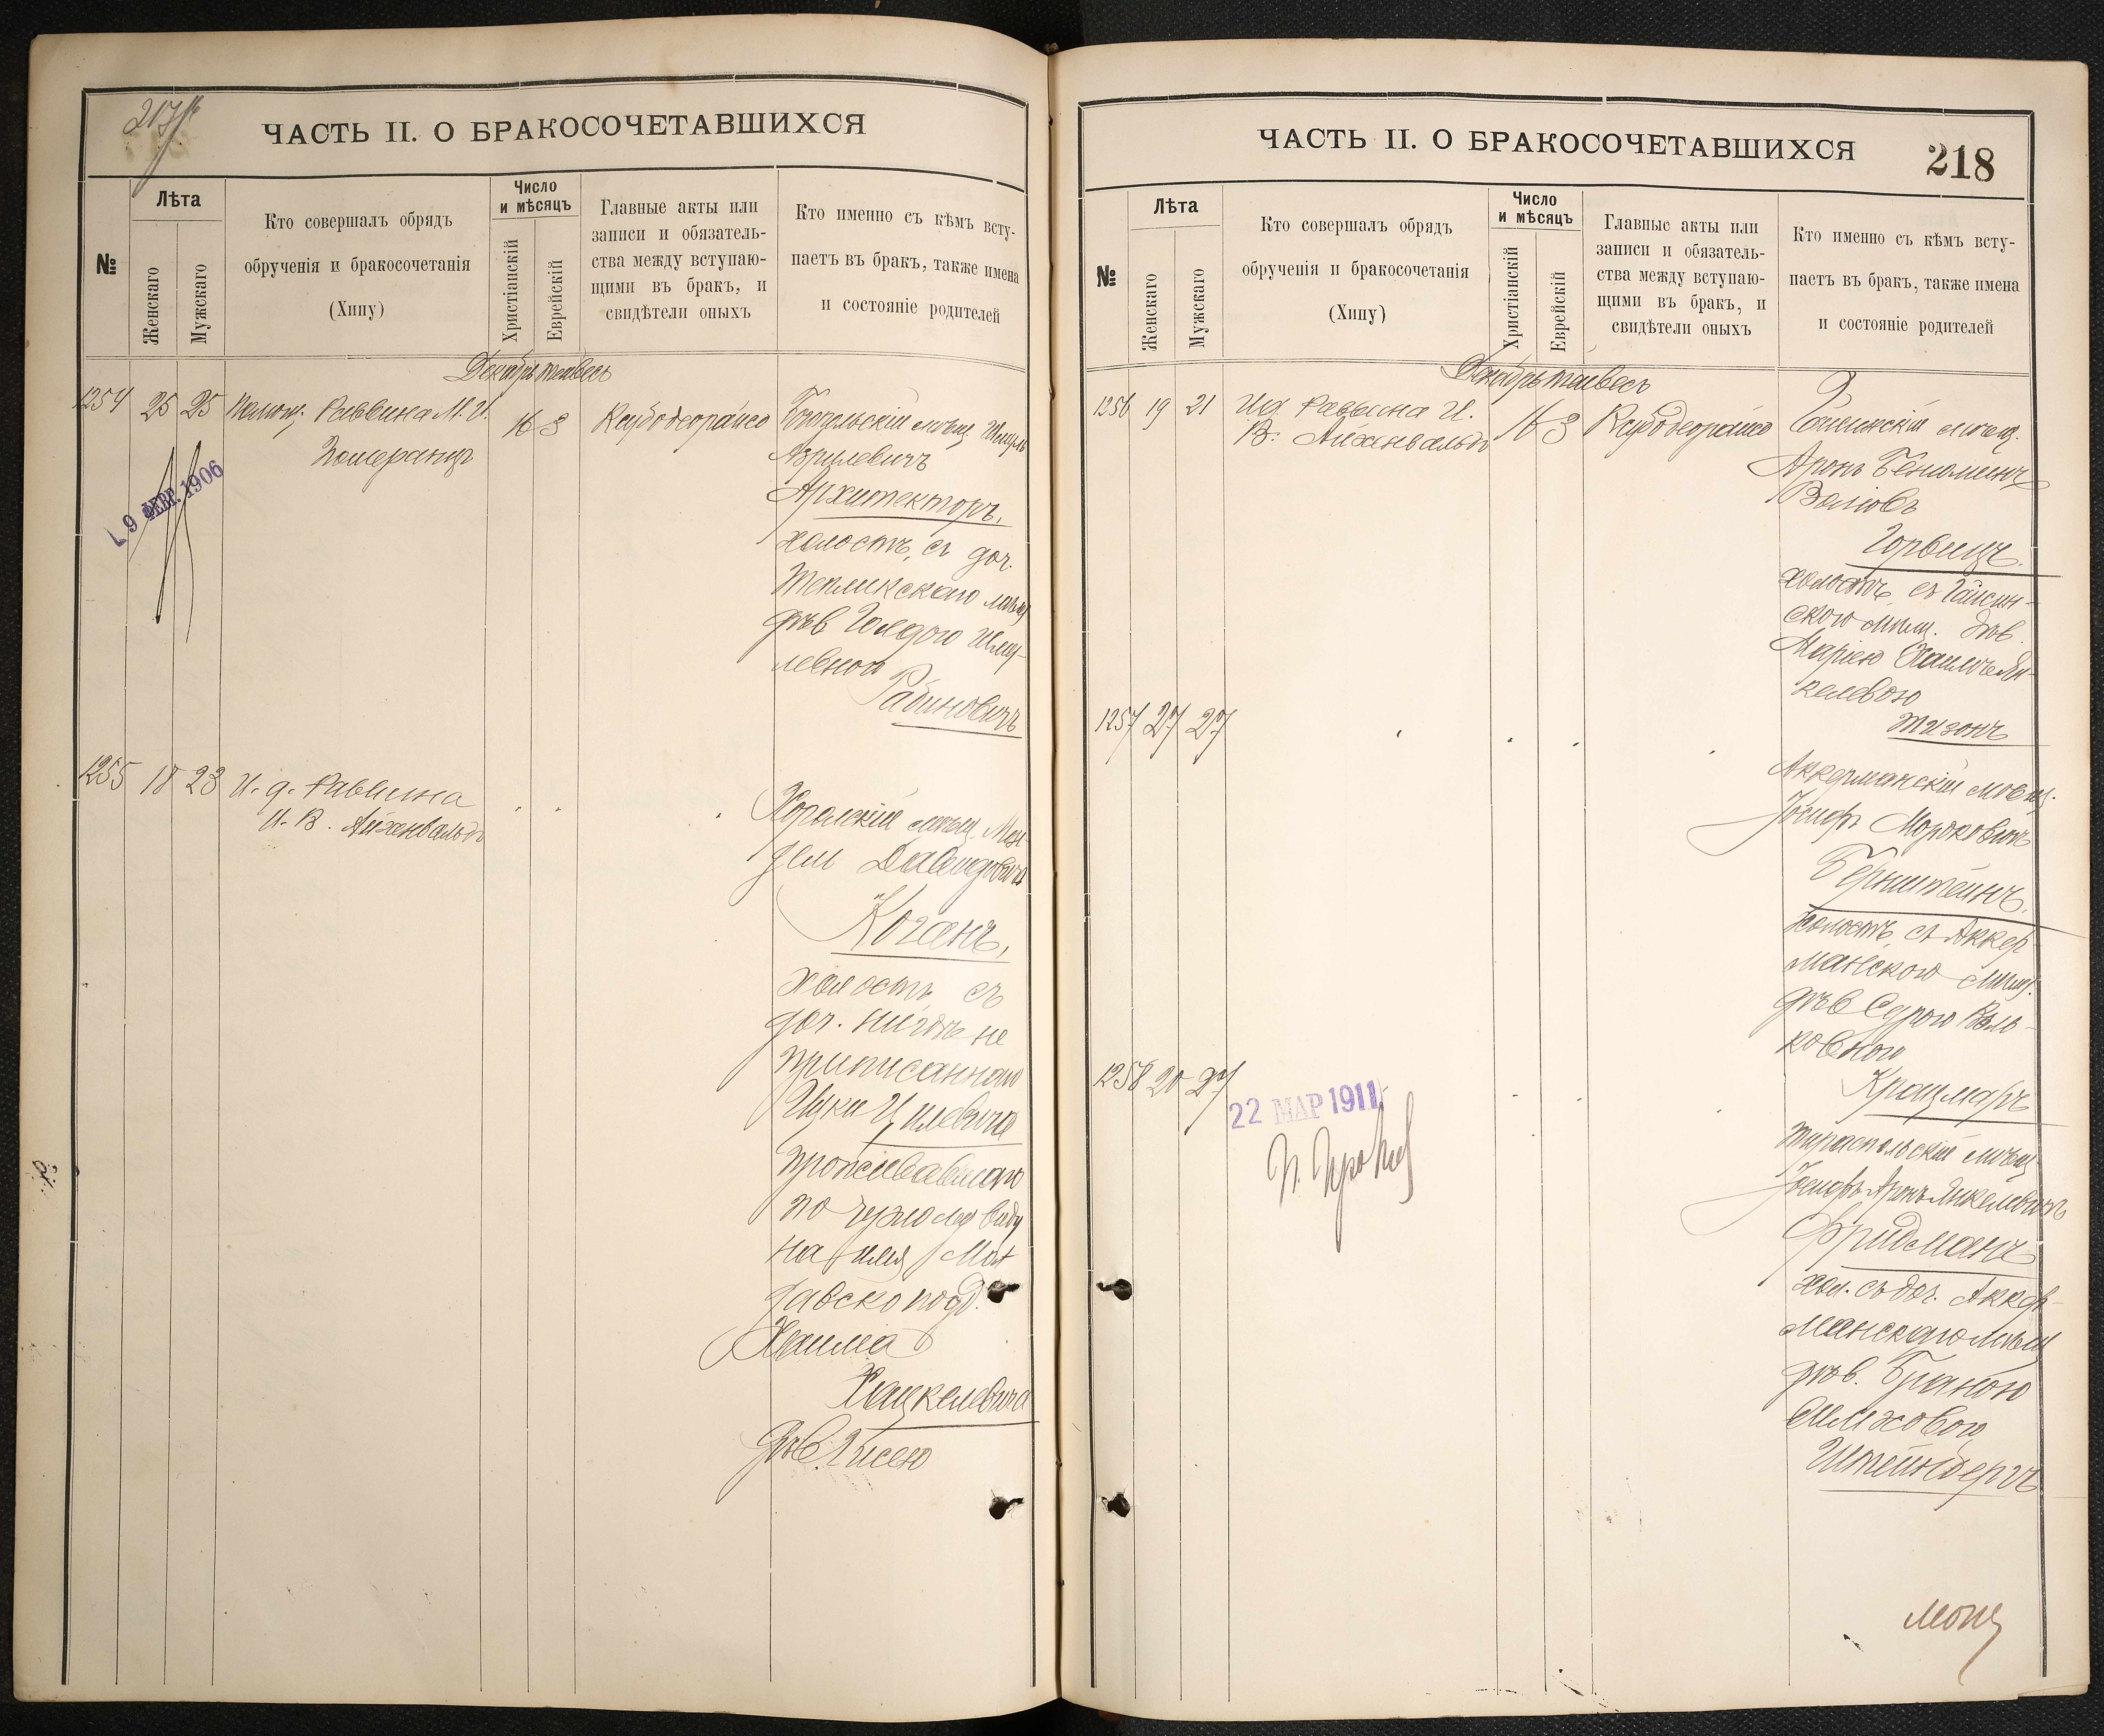 ЧАСТЬ II. О БРАКОСОЧЕТАВШИХСЯ
№
Лѣта
Женскаго
Мужскаго
Кто совершалъ обрядъ
обрученія и бракосочетанія
(Хипу)
Число
и мѣсяцъ
Христіанскій
Еврейскій
Главные акты или
записи и обязатель-
ства между вступаю-
щими въ бракъ, и
свидѣтели оныхъ
Кто именно съ кѣмъ всту-
паетъ въ бракъ, также имена
и состояніе родителей
1254 25 25 Помощ. Раввина М. И.
Померанцъ
16 3
9 ФЕВР. 1906
мѣщ. Шмуль
Азрилевичъ
Архитекторъ,
холостъ, съ доч.
Тепликскаго мѣщ
дѣв Голдою Шму-
левной
Рабиновичъ
1255 18 23 И. д. Раввина
И. В. Айхенвальдъ
Хоролскій мѣщ. Мен-
дель Давидовичъ
Коганъ,
холостъ, съ
доч. нигдѣ не
приписаннаго
проживавшаго
по чужому виду
на имя Мол
давско подд.
Хаима
Хацкелевича
дѣв. Хисею
ЧАСТЬ II. О БРАКОСОЧЕТАВШИХСЯ
218
№
Лѣта
Женскаго
Мужскаго
Кто совершалъ обрядъ
обрученія и бракосочетанія
(Хипу)
Число
и мѣсяцъ
Христіанскій
Еврейскій
Главные акты или
записи и обязатель-
ства между вступаю-
щими въ бракъ, и
свидѣтели оныхъ
Кто именно съ кѣмъ всту-
паетъ въ бракъ, также имена
и состояніе родителей
1256 19 21 И.д. Раввина И.
В. Айхенвальдъ
16 3
Гайсинскій мѣщ.
Аронъ Беніоминъ
Волковъ
Горвицъ
холостъ, съ Гайсин-
скою мѣщ. дѣв.
Маріею
келевою
Тизонъ
1257 27 27
Аккерманскій мѣщ.
Іосифъ Мордковичъ
Бернштейнъ.
холостъ, съ Аккер
манскою мѣщ.
дѣв Сурою Воль-
ковною
Крацмаръ
1258 20 27
22 МАР 1911
Тираспольскій мѣщ
Іосифъ Аронъ Янкелевичъ
Фридманъ
хол. съ доч. Аккер-
манскаго мѣщ
дѣв. Браною
Штейнбергъ